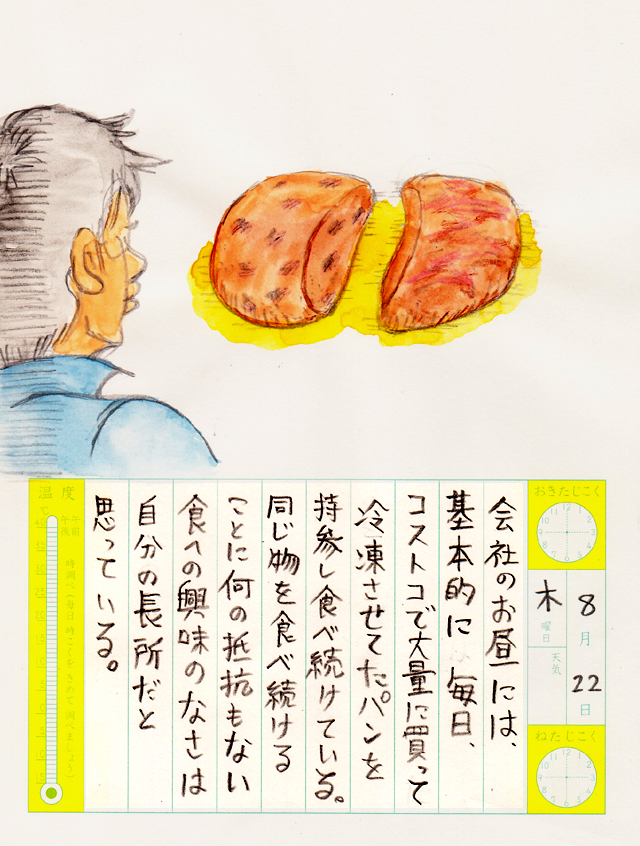 おきたじこく
8月
22日
木曜日
天気
ねたじこく
会社のお昼には、
基本的に毎日、
コストコで大量に買って
冷凍させてたパンを
持参し食べ続けている。
同じ物を食べ続ける
ことに何の抵抗もない
食への興味のなさは
自分の長所だと
思っている。
温度
午前
午後
時調べ(毎日時こくをきめて調べましょう)